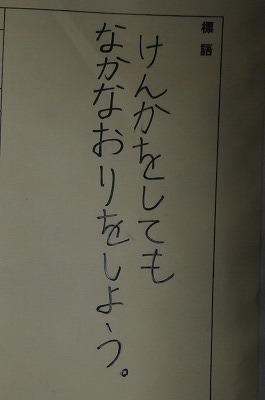 標語
けんかをしても
なかなおりをしよう。